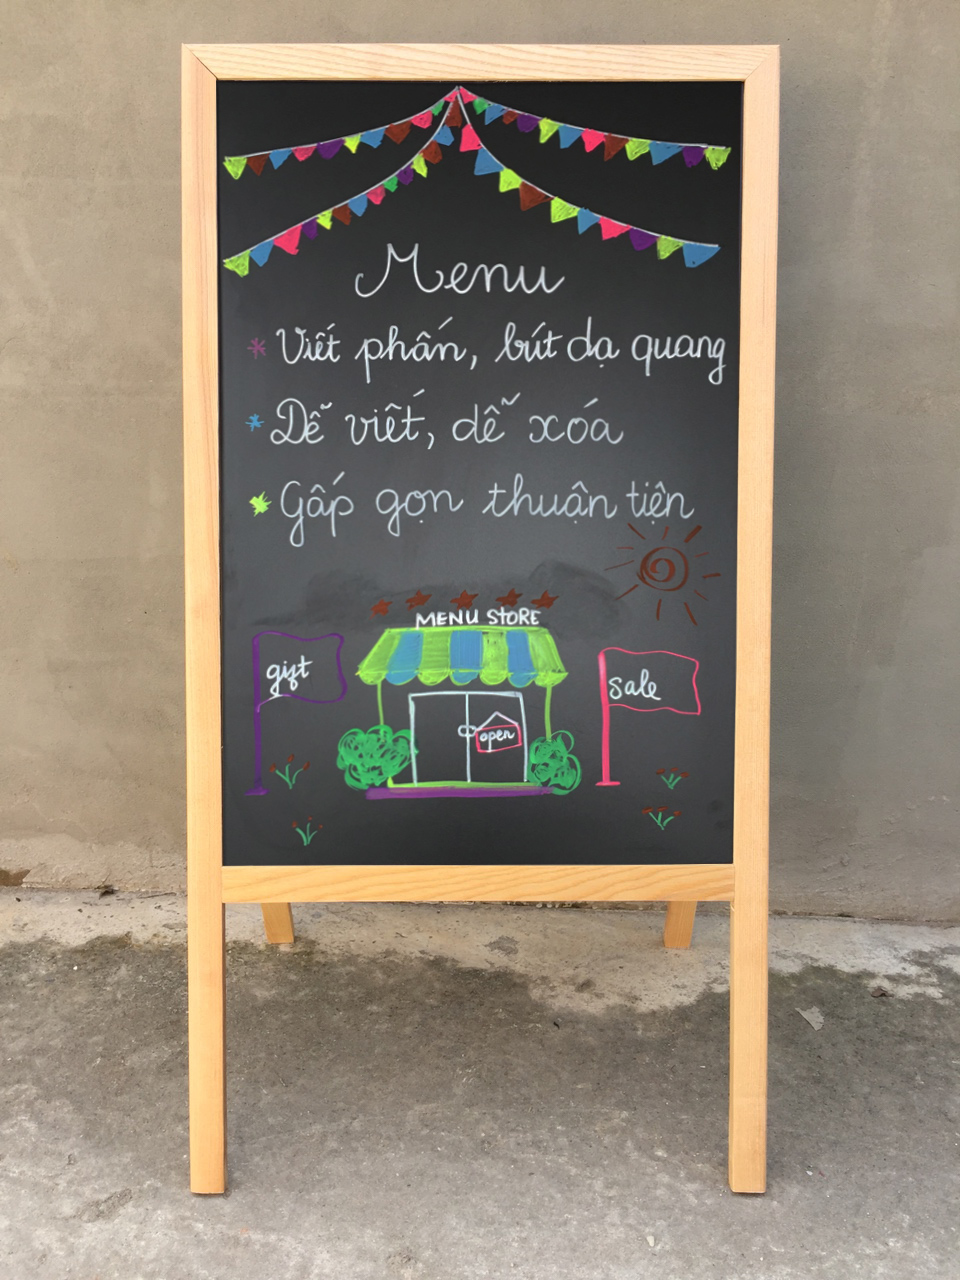 Menu
* Viết phấn, bút dạ quang
* Dễ viết, dễ xóa
* Gấp gọn thuận tiện
MENU STORE
gift
sale
open